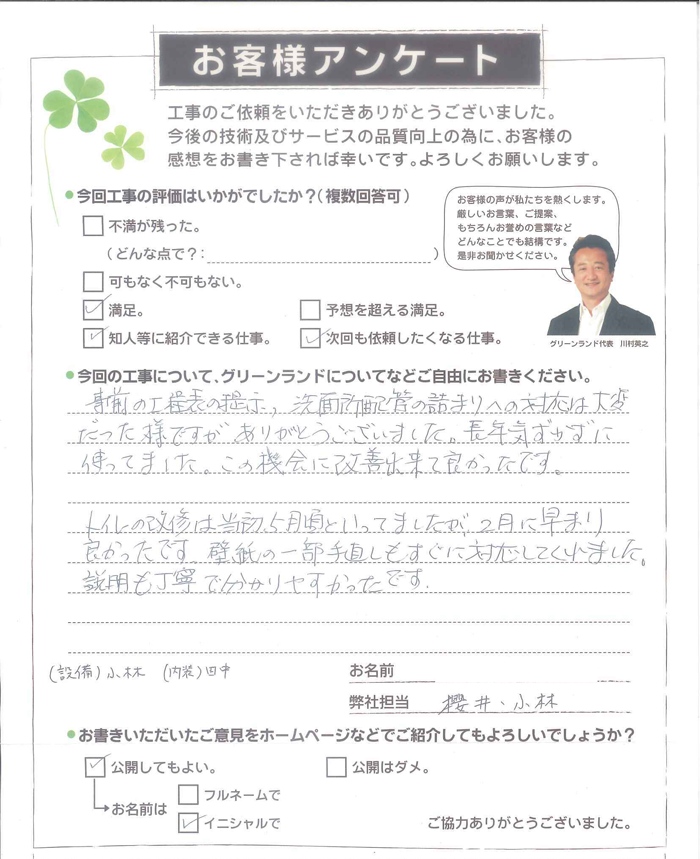 お客様アンケート
工事のご依頼をいただきありがとうございました。
今後の技術及びサービスの品質向上の為に、お客様の
感想をお書き下されば幸いです。よろしくお願いします。
今回工事の評価はいかがでしたか?(複数回答可)
不満が残った。
(どんな点で?: )
可もなく不可もない。
満足。
予想を超える満足。
知人等に紹介できる仕事。
次回も依頼したくなる仕事。
お客様の声が私たちを熱くします。
厳しいお言葉、ご提案、
もちろんお誉めの言葉など
どんなことでも結構です。
是非お聞かせください。
グリーンランド代表 川村英之
今回の工事について、グリーンランドについてなどご自由にお書きください。
事前の工程表の提示、洗面所配管の詰まりへの対応は大変
だった様ですがありがとうございました。長年気ずかずに
使ってました。この機会に改善出来て良かったです。
トイレの改修は当初、5月頃といってましたが、2月に早まり
良かったです 壁紙の一部手直しもすぐに対応してくれました。
説明も丁寧で分かりやすかったです.
(設備)小林 (内装)田中
お名前
弊社担当 櫻井・小林
お書きいただいたご意見をホームページなどでご紹介してもよろしいでしょうか?
公開してもよい。
公開はダメ。
お名前は
フルネームで
イニシャルで
ご協力ありがとうございました。